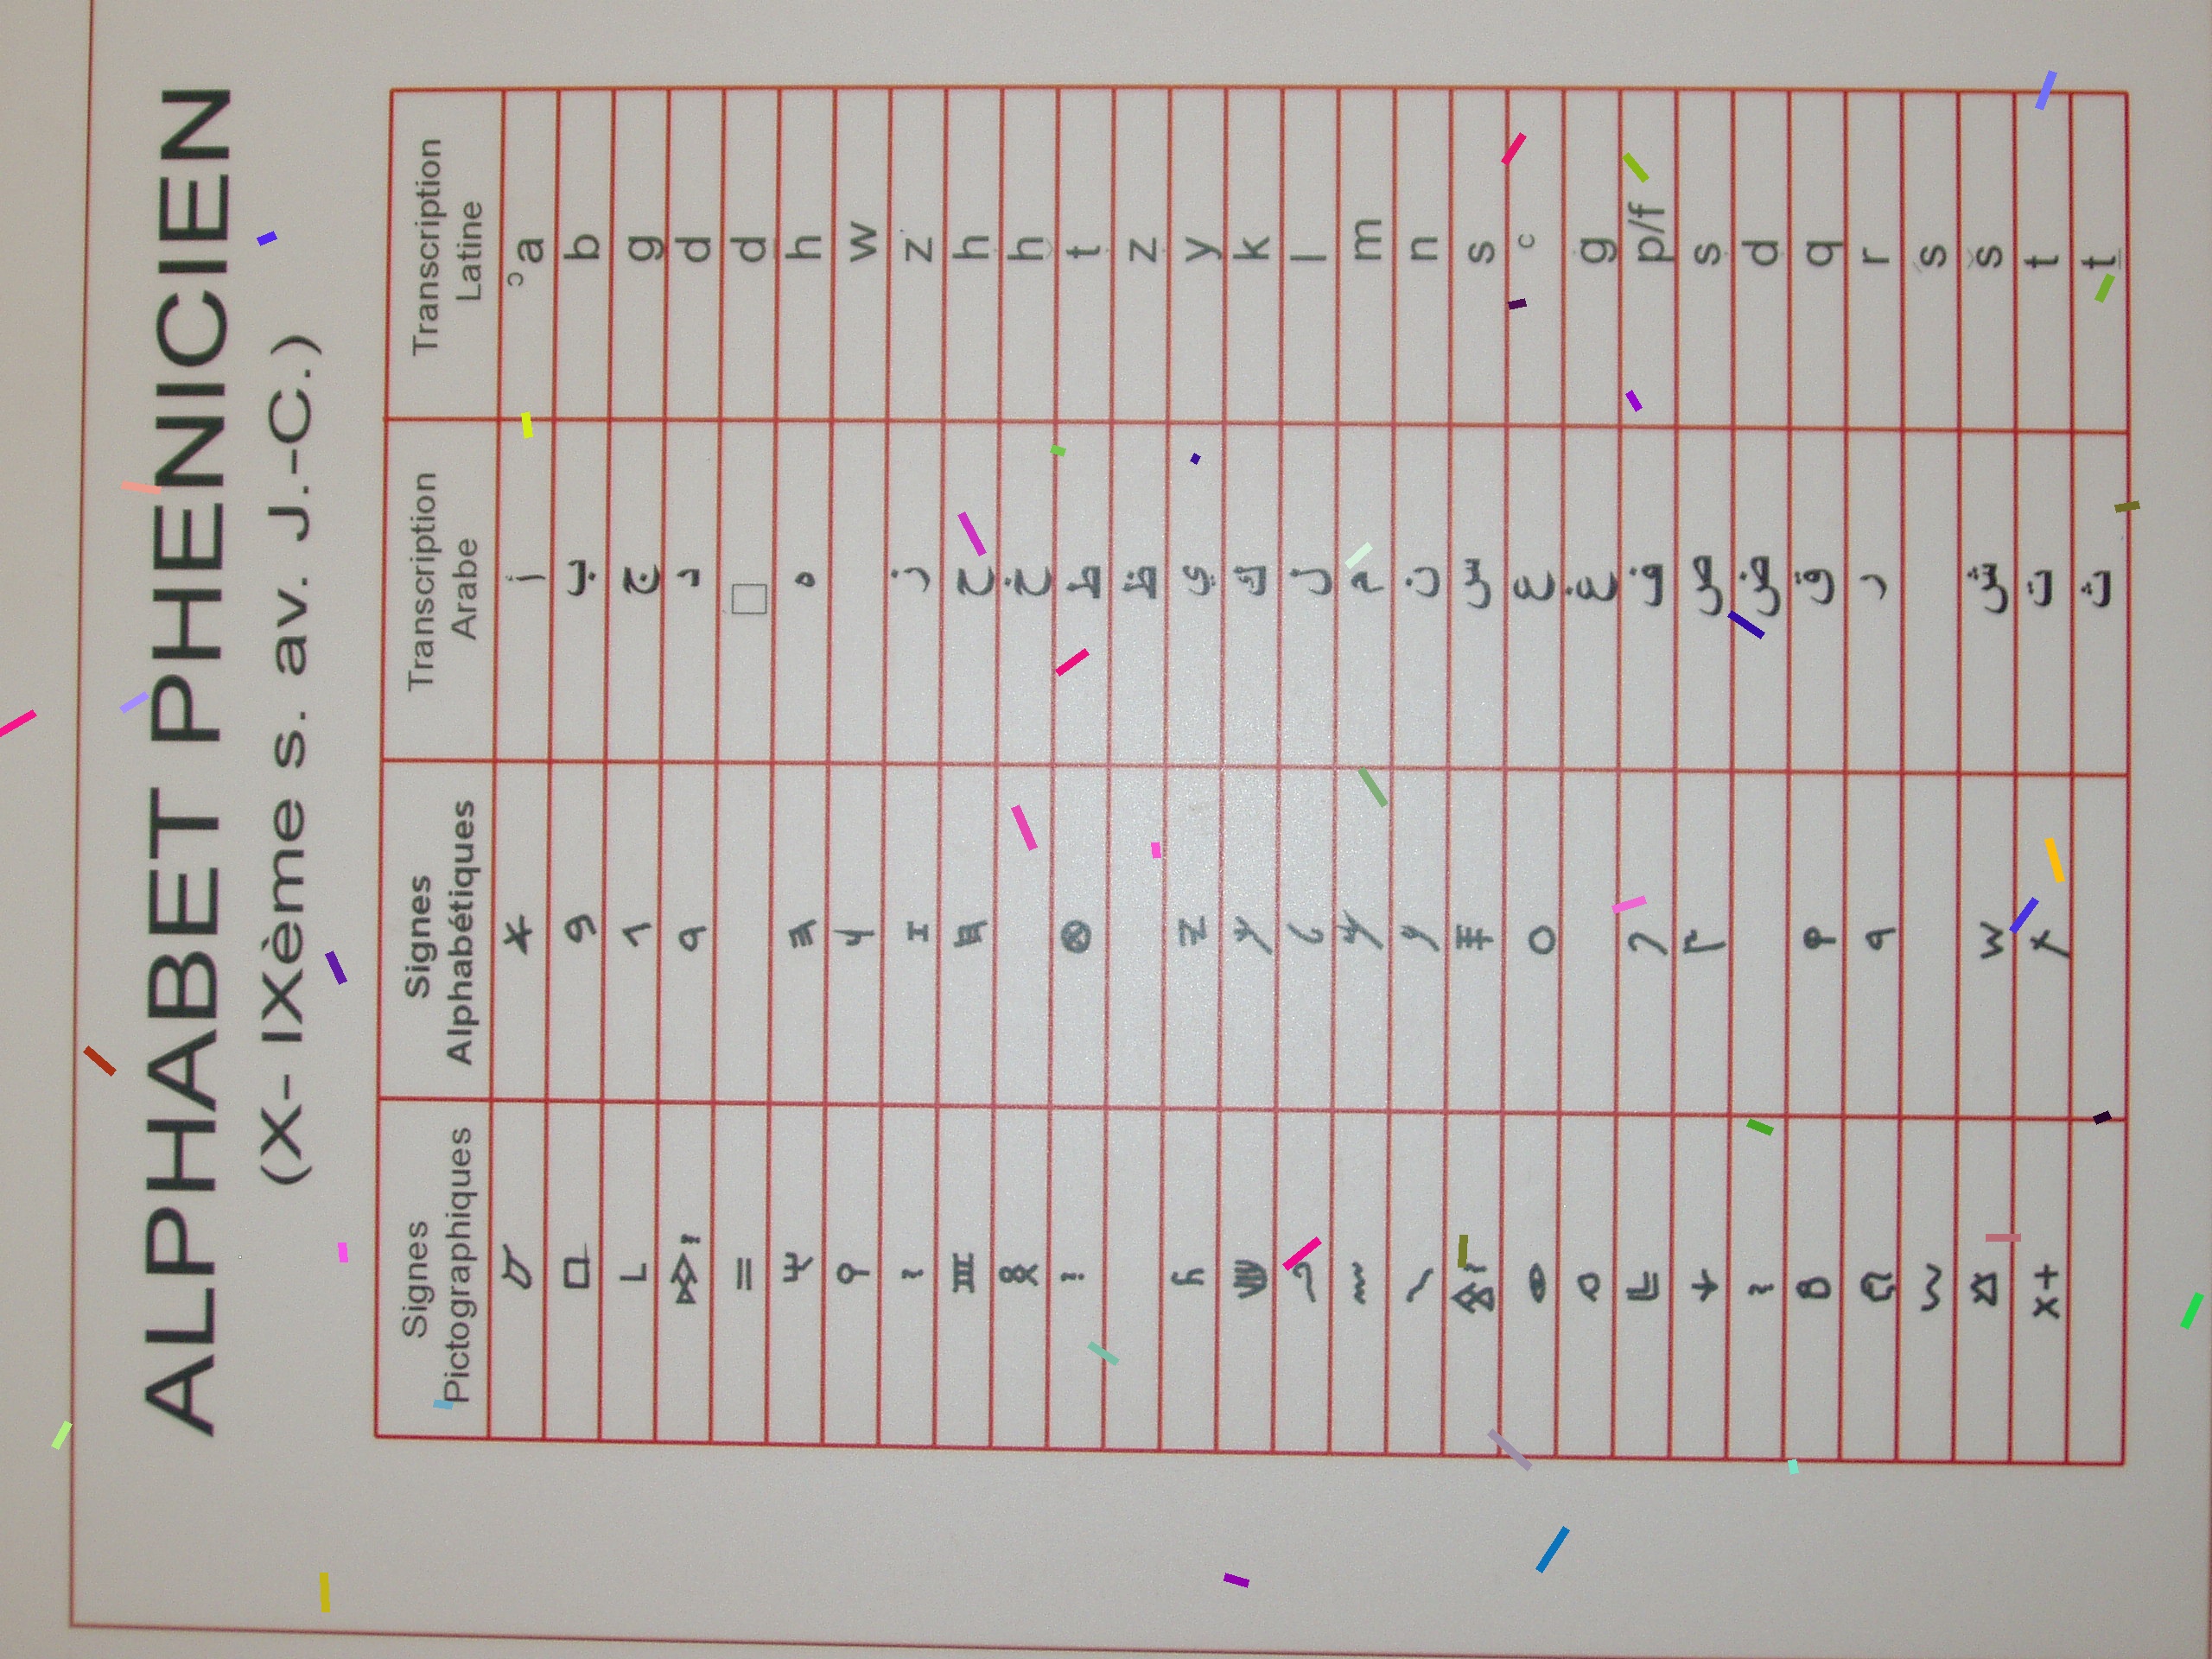 ALPHABET PHENICIEN
(X- IXème s. av. J.-C.)
Signes Pictographiques Signes Alphabétiques Transcription Arabe Transcription Latine
𐤀 أ ʾa
𐤁 ب b
𐤂 ج g
𐤃 د d
□ ḏ
𐤄 ه h
𐤅 w
𐤆 ز z
𐤇 ح ḥ
خ ḫ
𐤈 ط ṭ
ظ ẓ
𐤉 ي y
𐤊 ك k
𐤋 ل l
𐤌 م m
𐤍 ن n
𐤎 س s
𐤏 ع c
غ g
𐤐 ف p/f
𐤑 ص ṣ
ض ḍ
𐤒 ق q
𐤓 ر r
ś
𐤔 ش š
𐤕 ت t
ث ṯ